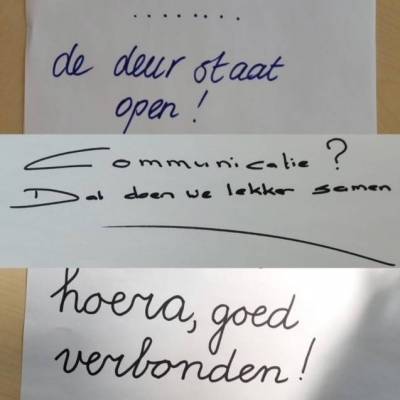 ........
de deur staat
open!
Communicatie?
Dat doen we lekker samen
hoera, goed
verbonden!